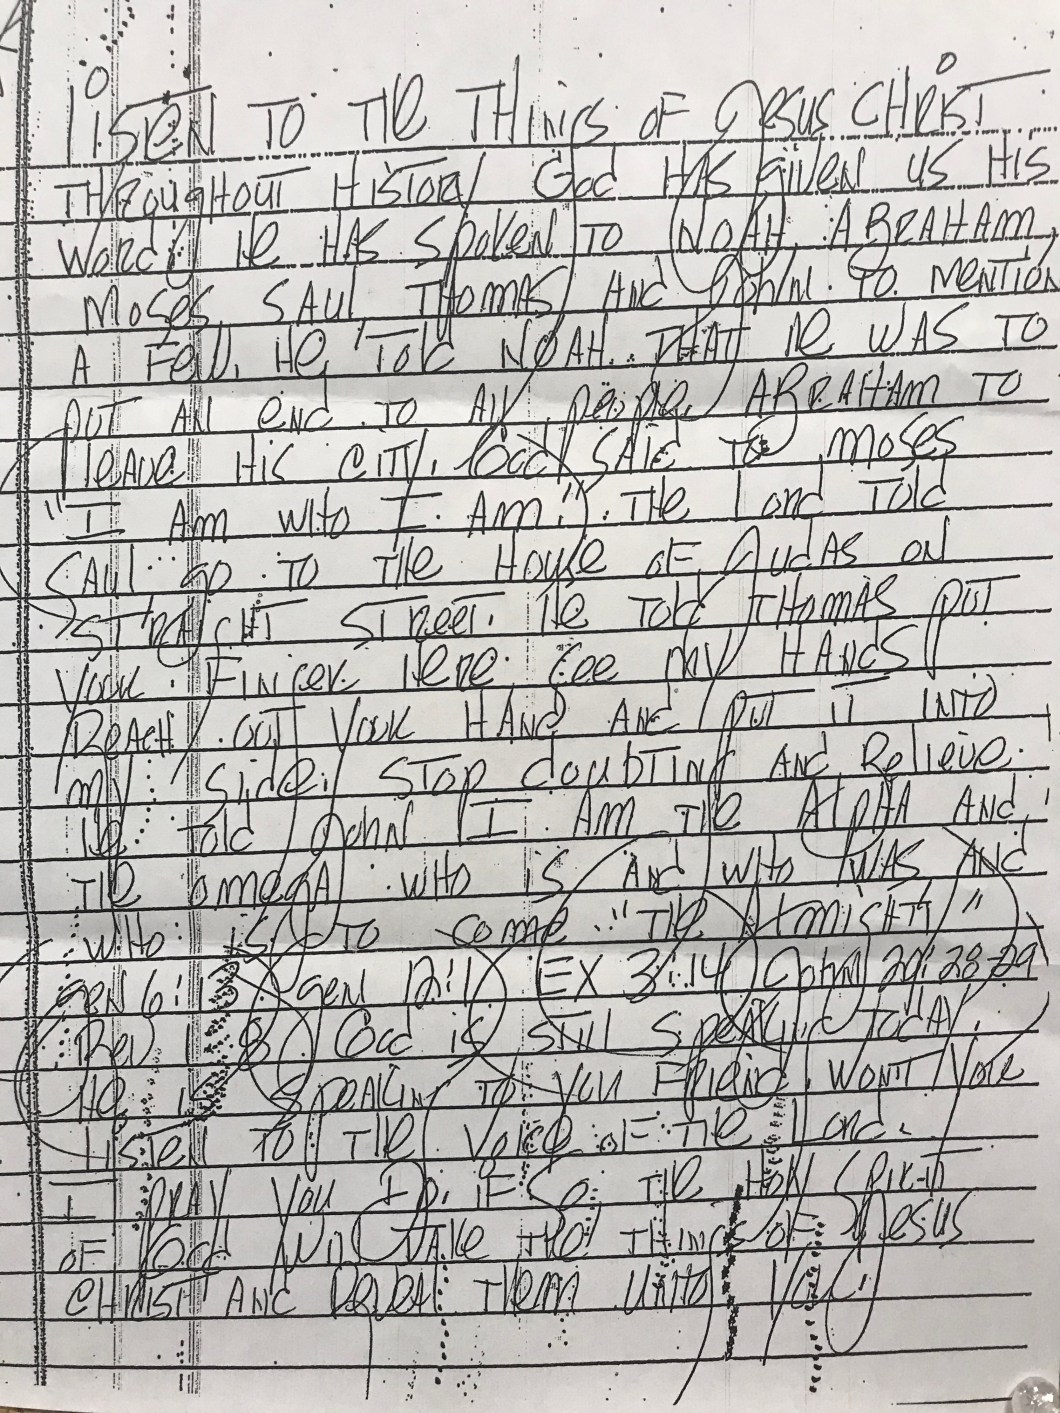 LISTEN TO THE THINGS OF JESUS CHRIST
THROUGHOUT HISTORY GOD HAS GIVEN US HIS
WORD. HE HAS SPOKEN TO NOAH, ABRAHAM,
MOSES, SAUL, THOMAS, AND JOHN. TO MENTION
A FEW. HE TOLD NOAH THAT HE WAS TO
PUT AN END TO ALL PEOPLE, ABRAHAM TO
LEAVE HIS CITY. GOD SAID TO MOSES
"I AM WHO I AM." THE LORD TOLD
SAUL GO TO THE HOUSE OF JUDAS ON
STRAIGHT STREET. HE TOLD THOMAS PUT
YOUR FINGER HERE. SEE MY HANDS
REACH OUT YOUR HAND AND PUT IT INTO
MY SIDE. STOP DOUBTING AND BELIEVE.
HE TOLD JOHN I AM THE ALPHA AND
THE OMEGA WHO IS AND WHO WAS AND
WHO IS TO COME "THE ALMIGHTY"
GEN 6:13 GEN 12:1 EX 3:14 JOHN 20:28-29
REV 1:8 GOD IS STILL SPEAKING TODAY.
HE IS SPEAKING TO YOU FRIEND. WONT YOU
LISTEN TO THE VOICE OF THE LORD.
I PRAY YOU DO. IF SO. THE HOLY SPIRIT
OF GOD WILL TAKE THE THINGS OF JESUS
CHRIST AND REVEAL THEM UNTO YOU.